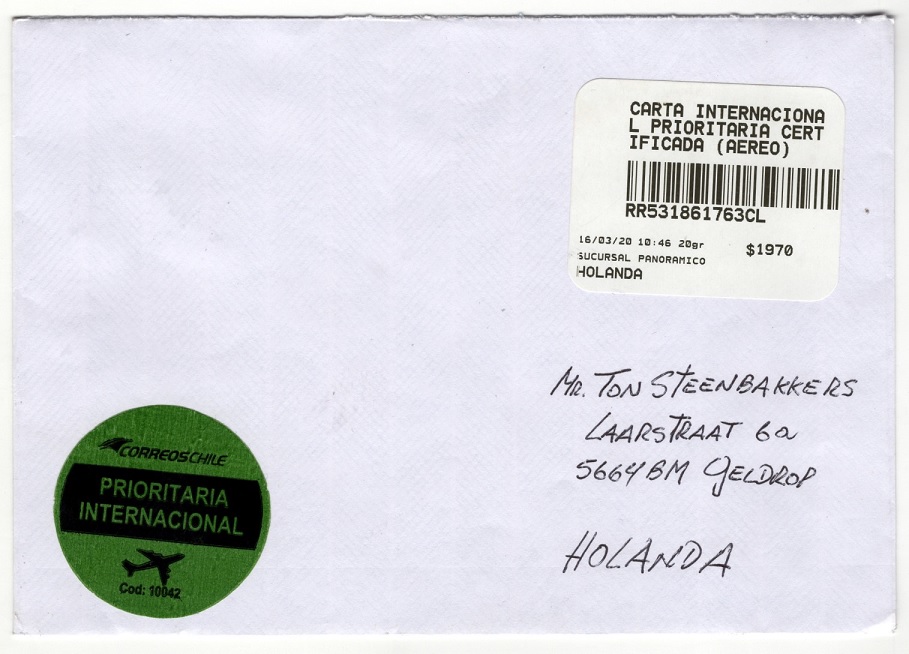 CARTA INTERNACIONA
L PRIORITARIA CERT
IFICADA (AEREO)
RR531861763CL
16/03/20 10:46 20gr $1970
SUCURSAL PANORAMICO
HOLANDA
Mr. Ton Steenbakkers
Laarstraat 6a
5664BM Geldrop
HOLANDA
CORREOSCHILE
PRIORITARIA
INTERNACIONAL
Cod: 10042